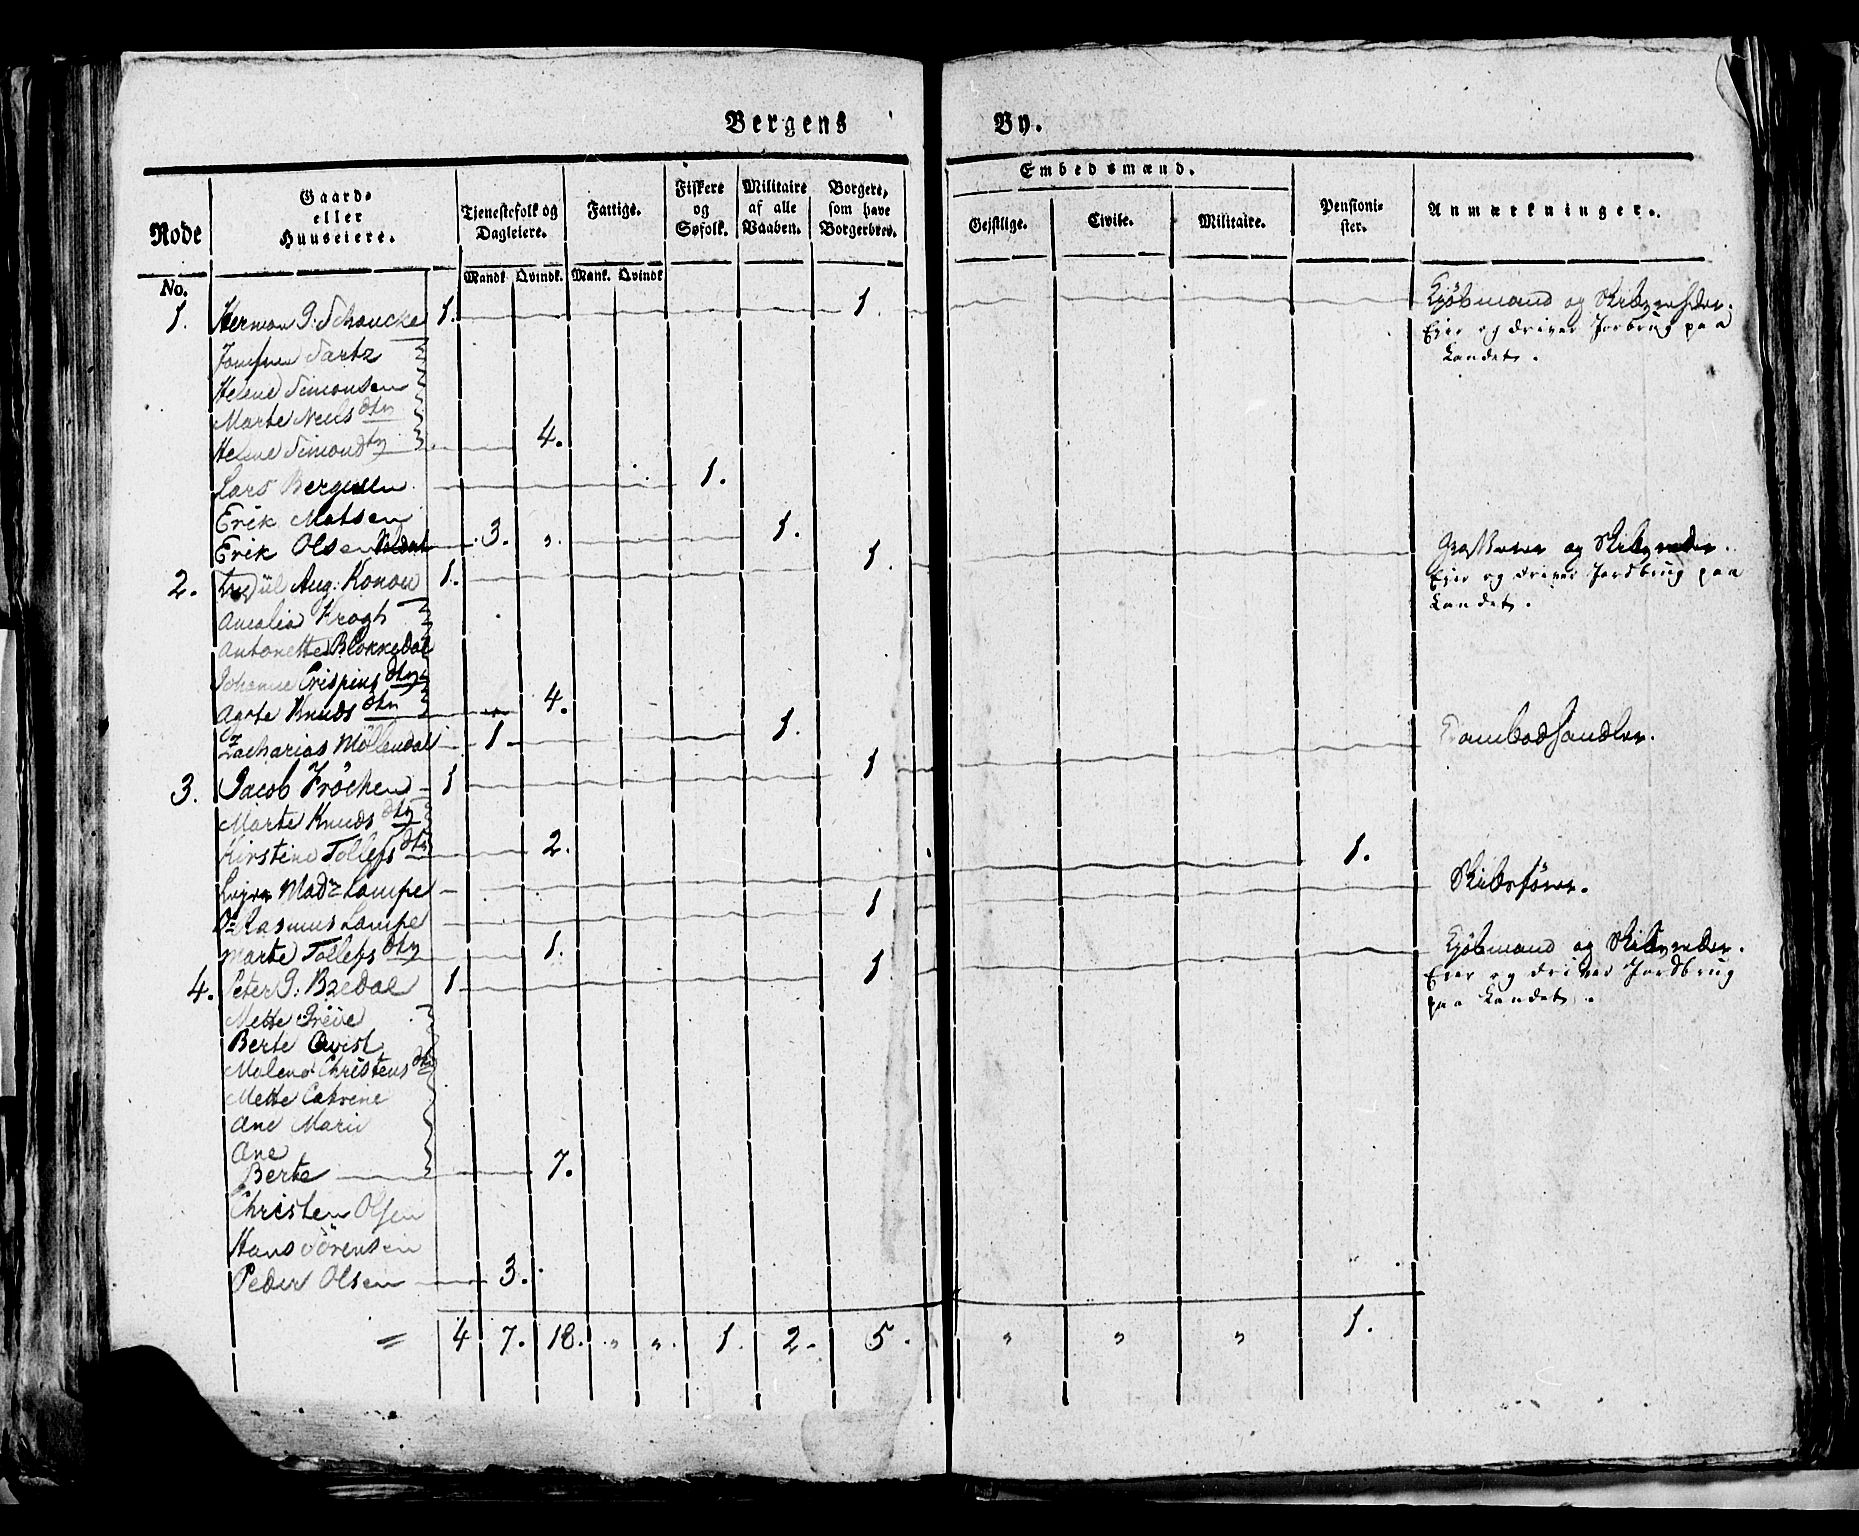 Bergens By.
Rode No.
Gaard- eller Huuseiere.
Tjenestefolk og Dagleiere.
Mandk. Qvindk.
Fattige.
Mank. Qvindk
Fiskere og Søfolk.
Militaire af alle Vaaben.
Borgere, som have Borgerbrev.
Embedsmænd.
Gejstlige. Civile. Militaire.
Pensioni- ster.
Anmærkninger.
1. Herman G. Schoucke 1. 1. Kjöbmand og Skibsrheder.
Ejer og driver Jorbrug paa
Landet.
Jomfrue Sartz
Helene Simonsen
Marte Neels dtr
Helene Simond dtr 4.
Lars Bergesen 1.
Erik Matsen
Erik Olsen 3. " 1.
2. Aug: Konow 1. 1. og Skibsreder.
Ejer og driver Jordbrug paa
Landet.
Amalia Krogh
Antonette Blokkedal
Johanne Crispins dtr
Agate Knuds dtr 4.
Zacharias Möllendal 1. 1.
3. Jacob Fröchen 1 1 Krambodhandler.
Marte Knuds dtr
Kirstine Tollefs dtr 2.
Madme Lampe 1.
Rasmus Lampe 1 Skibsförer.
Marte Tollefs dtr 1.
4. Peter G: Bredal 1 1 Kjöbmand og Skibsreder.
Ejer og driver Jordbrug
paa Landet.
Mette Greve
Berte Qvist
Malena Christens dtr
Mette Catrine
Ane Marie
Ane
Berte 7.
Christen Olsen
Hans Sörensen
Peder Olsen 3.
= 4 7. 18. " " 1. 2. 5. " " " 1.